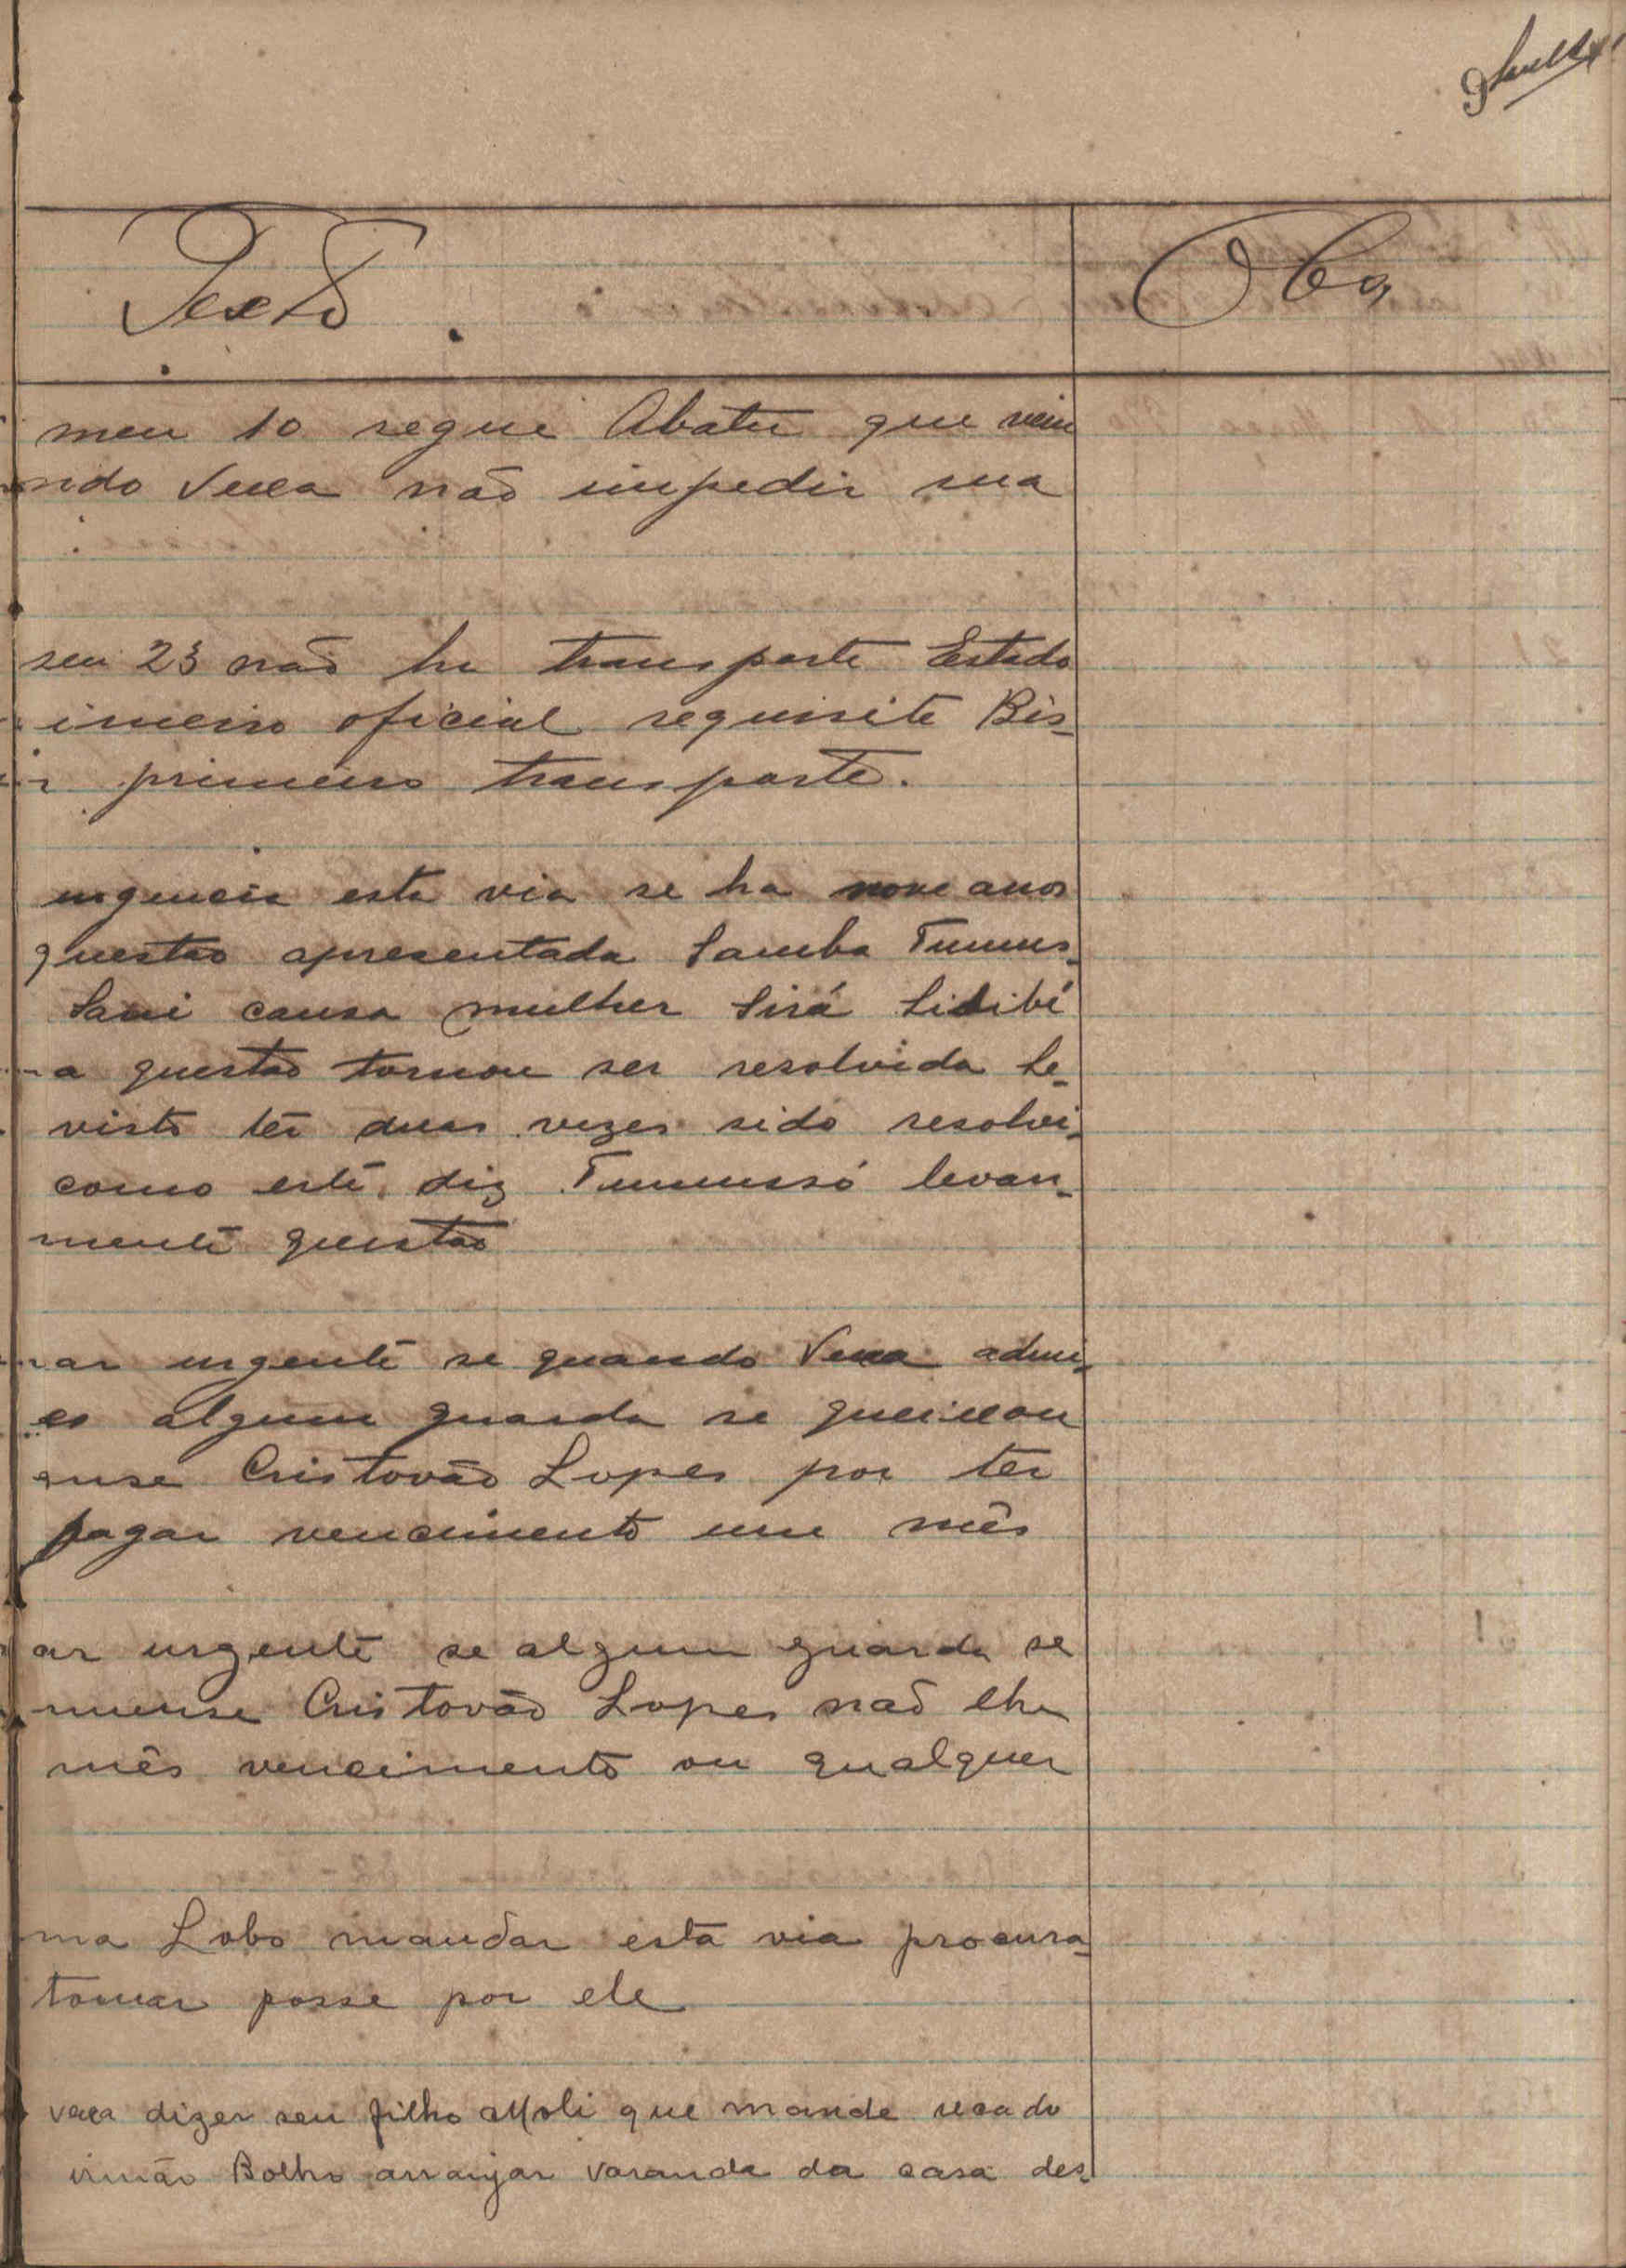 Texto
Obs
meu 10 segue Abatu que vem
ndo Vexa não impedir sua
seu 23 não ha transporte Estado
imeiro oficial requisite Bis-
primeiro transporte.
urgencia esta via se ha nove anos
questão apresentada Samba Tumus-
Sani causa mulher Sirá Sidibé
a questão tornou ser resolvida Se-
visto ter duas vezes sido resolvi-
como este diz Tumussó levan-
mente questão
ar urgente se quando Vexa admi-
es algum guarda se queixou
ense Cristovão Lopes por ter
pagar vencimento um mês
ar urgente se algum guarda se
uense Cristovão Lopes não lhe
mês vencimento ou qualquer
ma Lobo mandar esta via procura-
tomar posse por ele
vexa dizer seu filho Moli que mande recado
irmão Bolho arranjar varanda da casa des-